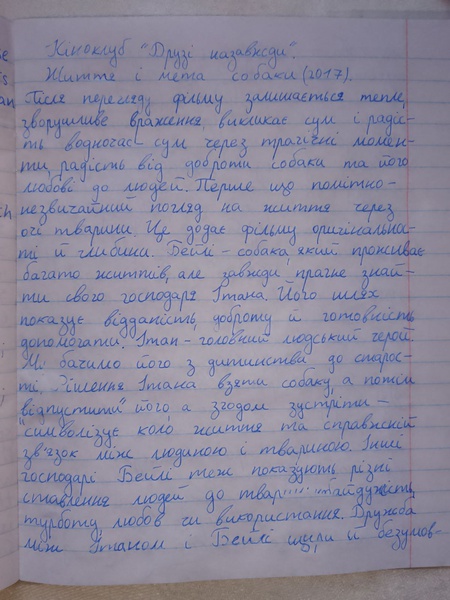 Кіноклуб "Друзі назавжди".
Життя і мета собаки (2017).
Після перегляду фільму залишається тепле,
зворушливе враження, викликає сум і радіс-
ть водночас сум через трагічні момен-
ти, радість від доброти собаки та його
любові до людей. Перше що помітно -
незвичайний погляд на життя через
очі тварини. Це додає фільму оригінальнос-
ті й глибини. Бейлі - собака, який проживає
багато життів, але завжди прагне знай-
ти свого господаря Ітана. Його шлях
показує відданість, доброту й готовність
допомагати. Ітан - головний людський герой.
Мі бачимо його з дитинства до старос-
ті. Рішення Ітана взяти собаку, а потім
"відпустити" його, а згодом зустріти -
символізує коло життя та справжній
зв'язок між людиною і твариною. Інші
господарі Бейлі теж показують різні
ставлення людей до твар байдужість,
турботу, любов чи використання. Дружба
між Ітаном і Бейлі щира й безумов-